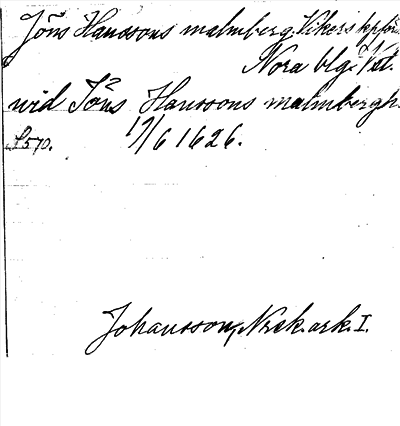 Jöns Hanssons malmberg. Vikers kpförs.
Nora blg. Vstl.
wid Jöns Hanssons malmbergh.
S 570. 17/6 1626.
Johansson, Norsk. ark. I.